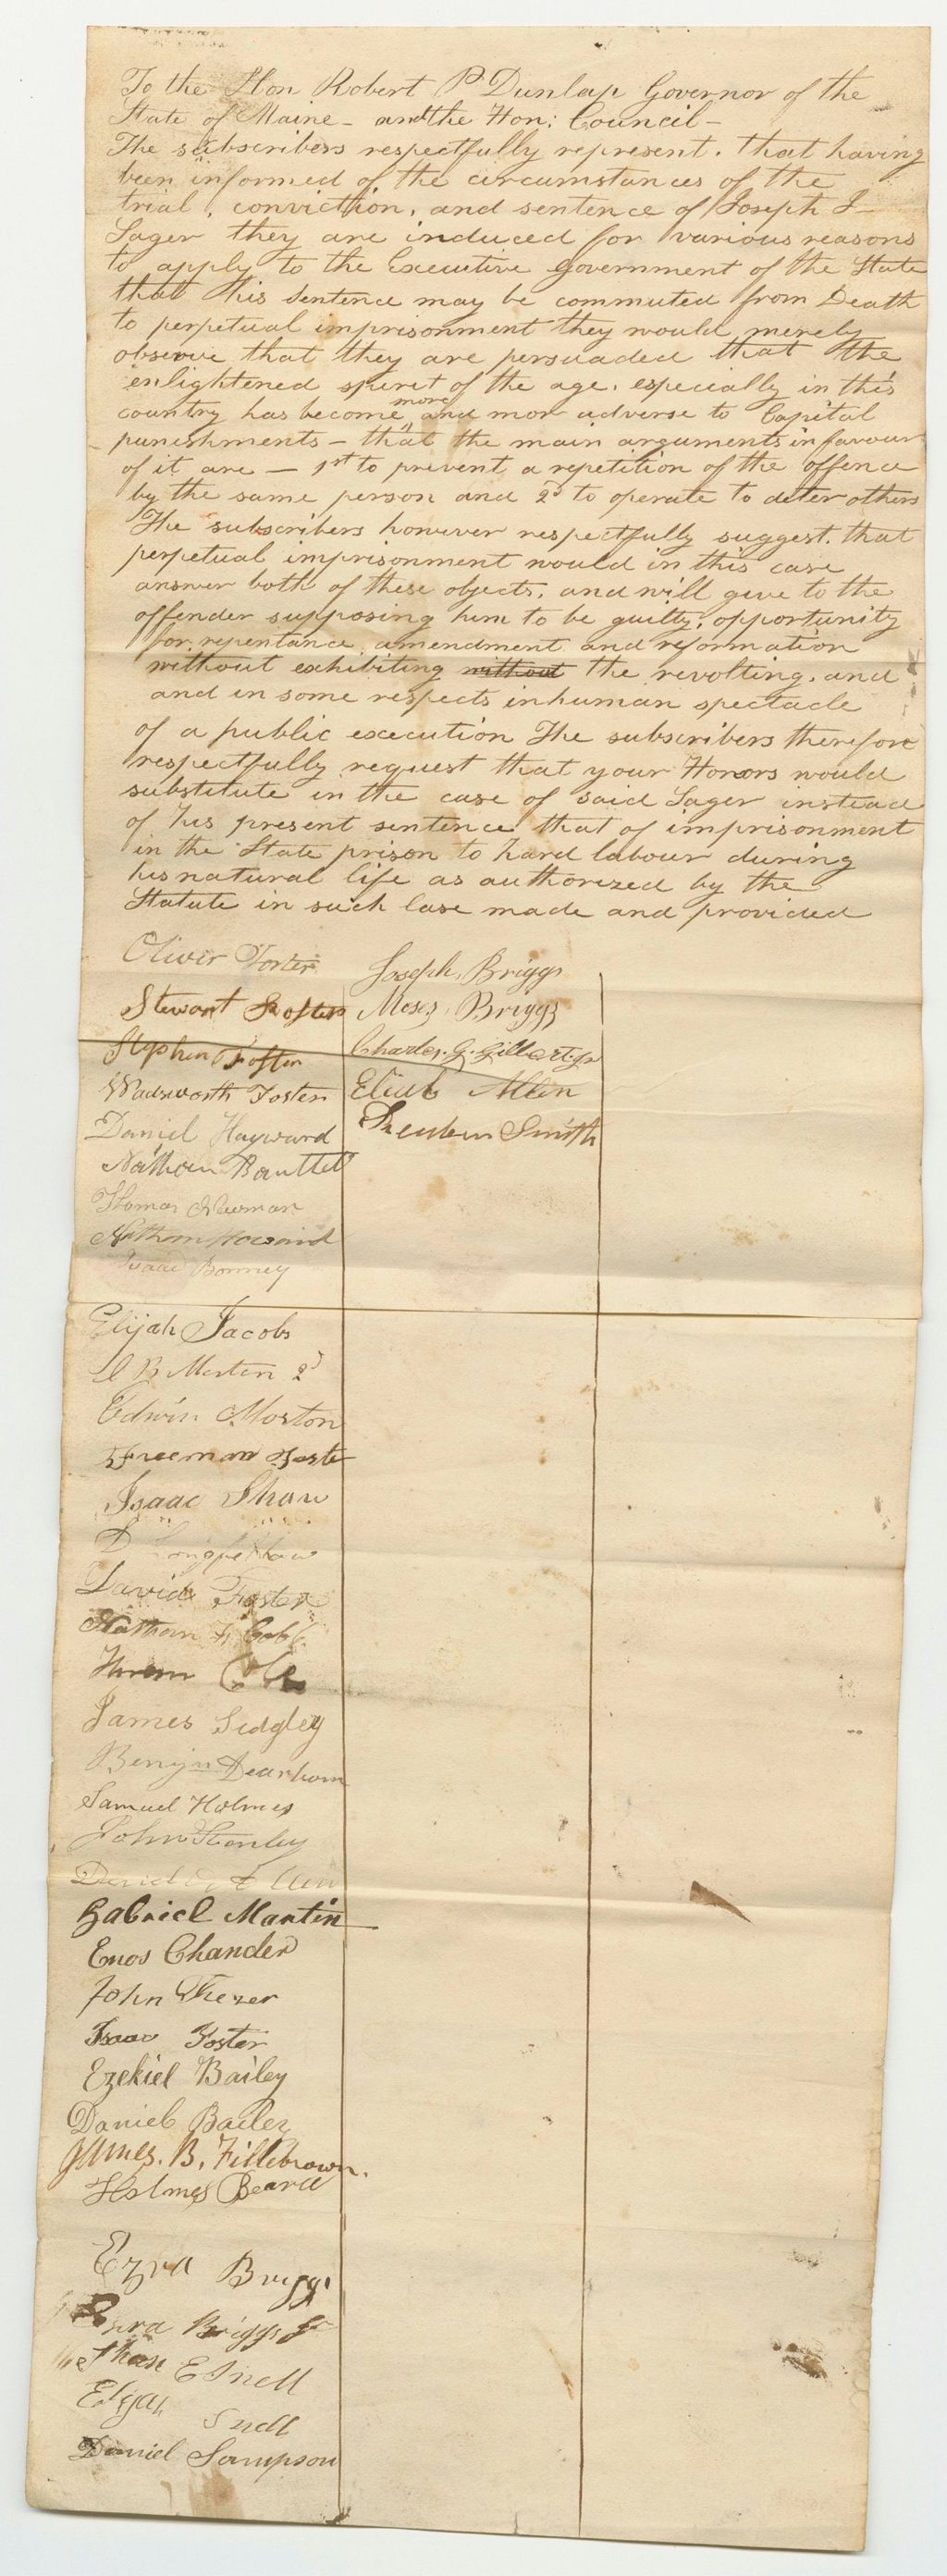 To the Hon Robert P Dunlap Governor of the
State of Maine - and the Hon: Council -
The subscribers respectfully represent. that having
been informed of the circumstances of the
trial, conviction, and sentence of Joseph J-
Sager they are induced for various reasons
to apply to the Executive Government of the State
that his sentence may be commuted from Death
to perpetual imprisonment they would merely
observe that they are persuaded that the
enlightened spirit of the age, especially in this
country has become more and mor adverse to Capital
punishments - that the main arguments in favour
of it are - 1st to prevent a repetition of the offence
by the same person and 2d to operate to deter others
The subscribers however respectfully suggest. that
perpetual imprisonment would in this case
answer both of these objects, and will give to the
offender supposing him to be guilty, opportunity
for repentance amendment and reformation
without exhibiting without the revolting, and
and in some respects inhuman spectacle
of a public execution The subscribers therefore
respectfully request that your Honors would
substitute in the case of said Sager instead
of his present sentence that of imprisonment
in the State prison to hard labour during
his natural life as authorized by the
Statute in such case made and provided
Oliver Foster
Stewart Foster
Stephen Foster
Wadsworth Foster
Daniel Hayward
Nathan Bartlet
Thomas Newman
Nathan Howard
Isaac Bonney
Elijah Jacobs
B Morton 2d
Edwin Morton
Freeman Foster
Isaac Shaw
D Longfellow
David Foster
Nathan Cobb
Hiram Cole
James Sedgley
Benjn Dearborn
Samuel Holmes
John Stanley
David Allen
Gabriel Martin
Enos Chander
John Frezer
Isaac Foster
Ezekiel Bailey
Daniel Bailey
James. B. Fillebrown.
Holmes Bearce
Ezra Briggs
Ezra Briggs Jr
E Snell
Elijah Snell
Daniel Sampson
Joseph Briggs
Moses Briggs
Charles. G. Gilbert Jr
Eliab Allen
Reuben Smith